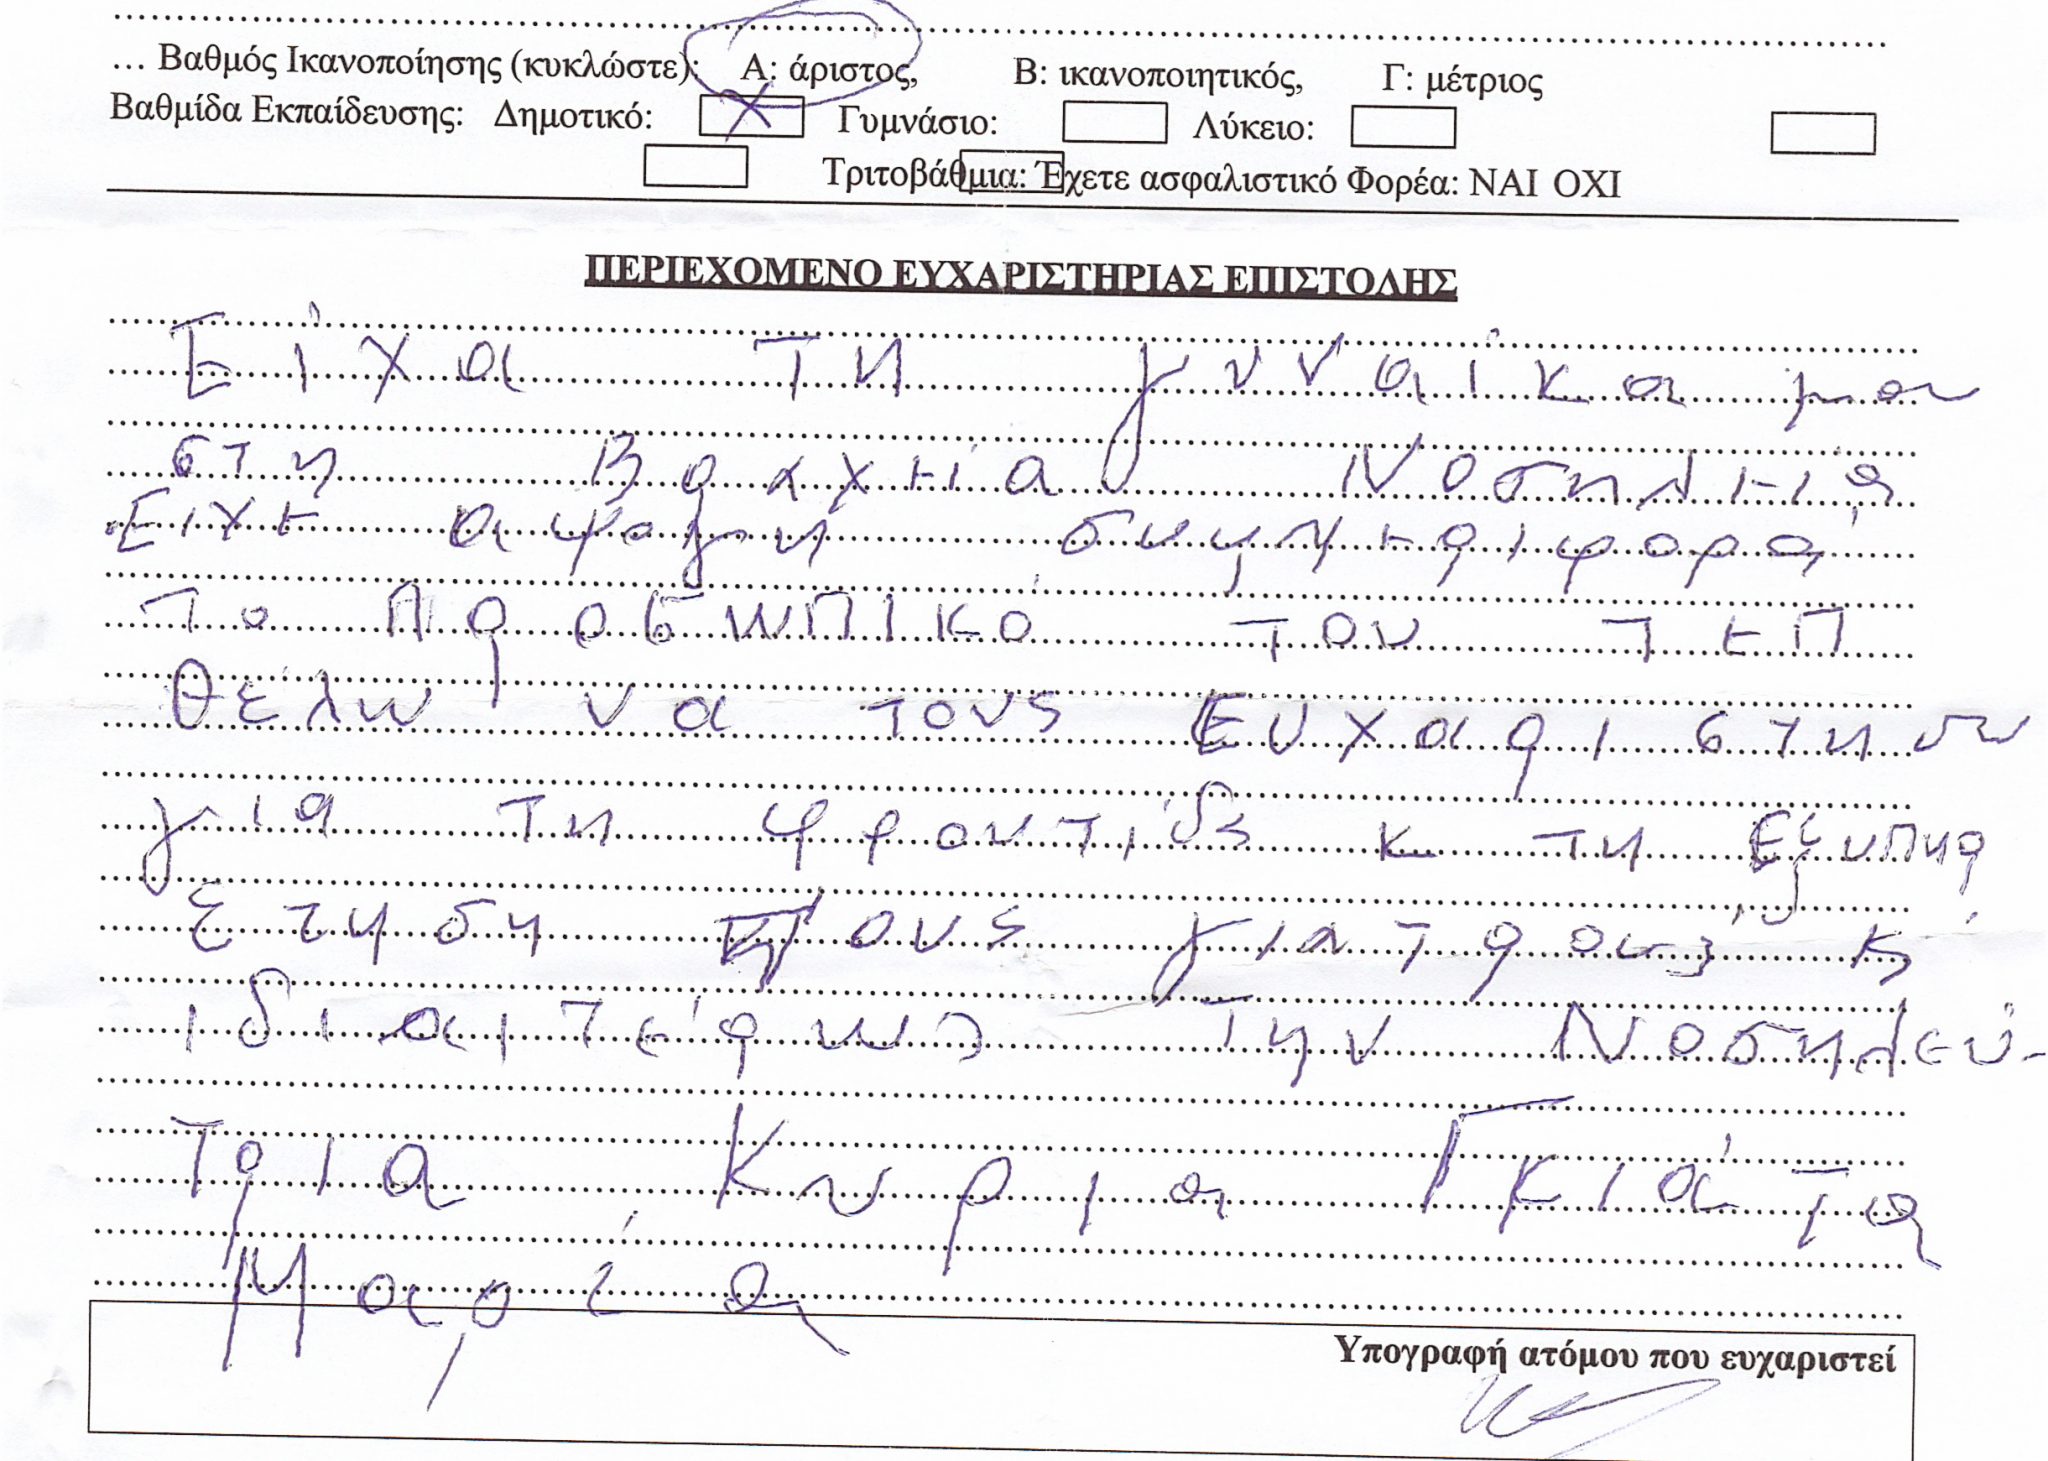 ... Βαθμός Ικανοποίησης (κυκλώστε): Α: άριστος, Β: ικανοποιητικός, Γ: μέτριος
Βαθμίδα Εκπαίδευσης: Δημοτικό: Γυμνάσιο: Λύκειο:
Τριτοβάθμια: Έχετε ασφαλιστικό Φορέα: ΝΑΙ ΟΧΙ
ΠΕΡΙΕΧΟΜΕΝΟ ΕΥΧΑΡΙΣΤΗΡΙΑΣ ΕΠΙΣΤΟΛΗΣ
Είχα τη γυναίκα μου
στη Βραχεία Νοσηλεία
Είχε αψογη συμπεριφορά
το Προσωπικό του ΤΕΠ
Θελω να τους Ευχαριστησω
για τη φροντίδα κ τη Εξυπηρ
ετηση τους γιατρούς κ
ιδιαιτείρως την Νοσηλεύ-
τρια Κυρια Γκιάτα
Μαρία
Υπογραφή ατόμου που ευχαριστεί